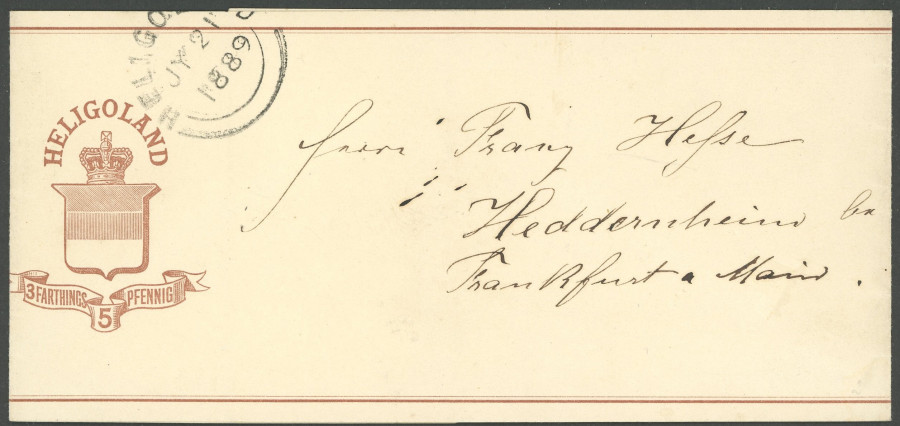 HELIGOLAND
JY 21
1889
HELIGOLAND
3 FARTHINGS 5 PFENNIG
Herrn Franz Hesse
Heddernheim
Frankfurt a Main.